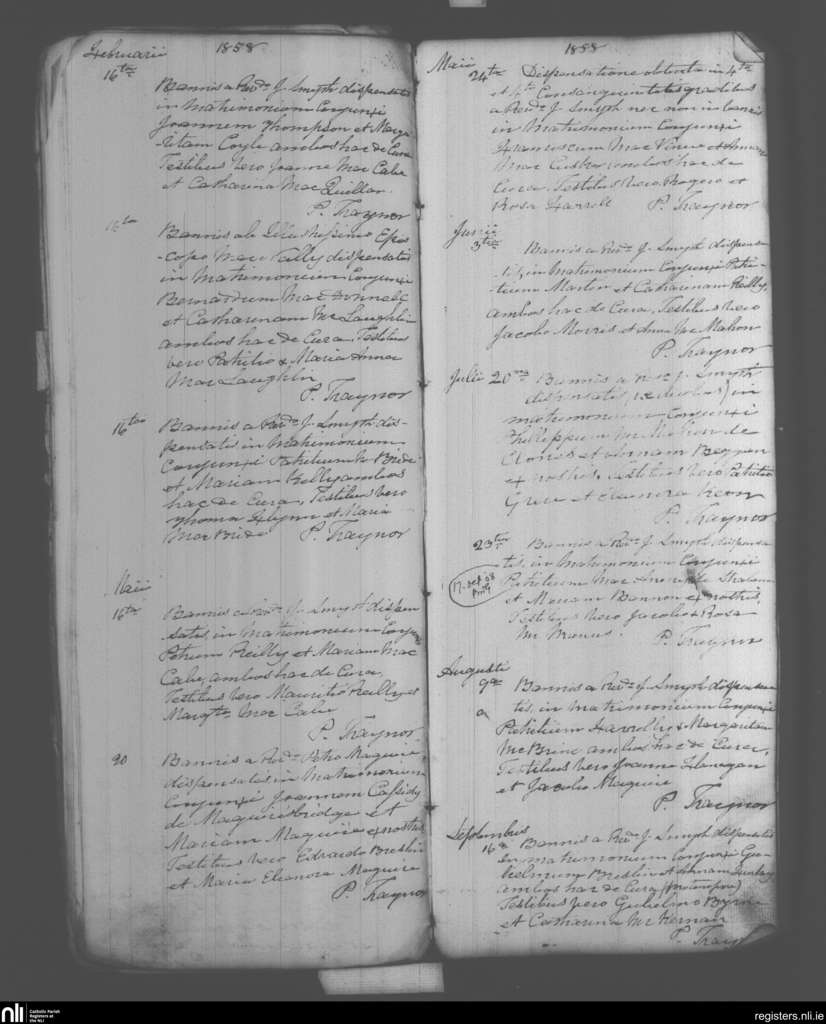 Februarii 1858
16to
Bannis a Revdo J. Smyth dispensatis
in Matrimonium Conjunxi
Joannem Thompson et Marga
ritam Coyle ambos hac de Cura
Testibus vero Joanne Mac Cabe
et Catharina Mac Quillan.
P. Traynor
16to
Bannis ab Illustrissimo Epis
copo Mac Nally dispensatis
in Matrimonium Conjunxi
Bernardum Mac Donnell
et Catharinam Mc Laughlin
ambos hac de Cura, Testibus
vero Patritio & Maria Anna
Mac Laughlin
P. Traynor
16to
Bannis a Revdo J. Smyth dis-
pensatis in Matrimonium
Conjunxi Patritium Mc Bride
et Mariam Kelly ambos
hac de Cura, Testibus vero
Thoma Flynn et Maria
Mac Bride P. Traynor
Maii
16to
Bannis a Revdo J. Smyth dispen
satis, in Matrimonium Conjunxi
Petrum Reilly et Mariam Mac
Cabe, ambos hac de Cura,
Testibus vero Mauritio Reilly et
Margta Mac Cabe
P. Traynor
20
Bannis a Revdo Petro Maguire
dispensatis in Matrimonium
Conjunxi Joannem Cassidy
de Maguiresbridge et
Mariam Maguire ex nostris,
Testibus vero Edvardo Breslin
et Maria Eleanora Maguire
P. Traynor
1858
Maii
24to Dispensatione obtenta in 4to
et 4to Consanguinitatis gradibus
a Revdo J. Smyth nec non in bannis
in Matrimonium Conjunxi
Franciscum Mac et Annam
Mac ambos hac de
Cura, Testibus vero et
Rosa Farrell P. Traynor
Junii
3tio
Bannis a Revdo J. Smyth dispensa
tis, in Matrimonium Conjunxi Patri-
tium Martin et Catharinam Reilly,
ambos hac de Cura, Testibus vero
Jacobo Morris et Anna Mc Mahon
P. Traynor
Julii 20mo Bannis a J. Smyth
dispensatis, in
matrimonium Conjunxi
Philippum Mc Mahon de
Clones et Annam
ex nostris, Testibus vero Patritio
et Eleanora
P. Traynor
23tio Bannis a Revdo J. Smyth dispensa
tis, in Matrimonium Conjunxi
Patritium Mac de
et Mariam Bannon ex nostris,
Testibus vero Jacobo & Rosa
Mc Manus. P. Traynor
17. Oct 08
Augusti
9no
Bannis a Revdo J. Smyth dispensa
tis, in Matrimonium Conjunxi
Patritium & Margaritam
McBrine ambos hac de Cura,
Testibus vero Joanne Flanagan
et Jacobo Maguire
P. Traynor
Septembris
16to Bannis a Revdo J. Smyth dispensatis
in matrimonium Conjunxi Gu-
lielmum Breslin et Annam
ambos hac de Cura
Testibus vero Gulielmo Byrne
et Catharina Mc Kernan
P. Traynor
nli Catholic Parish
Registers at
the NLI
registers.nli.ie